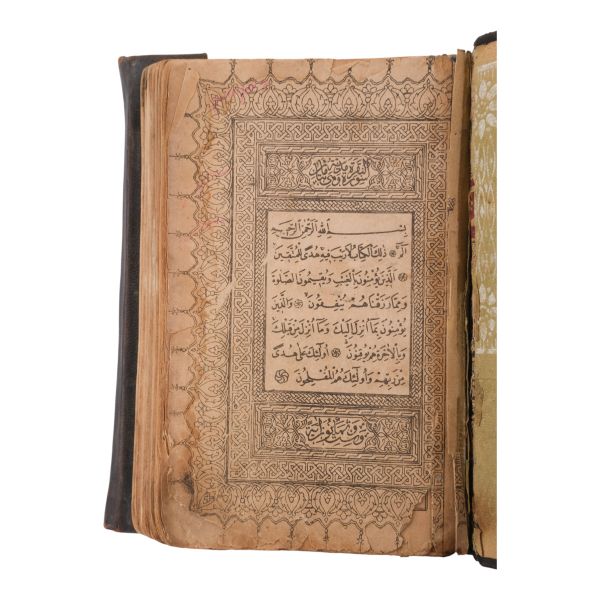 سورة البقرة مدنية وهي مائتان
بسم الله الرحمن الرحيم
الم ذلك الكتاب لا ريب فيه هدى للمتقين
الذين يؤمنون بالغيب ويقيمون الصلوة
ومما رزقناهم ينفقون والذين
يؤمنون بما انزل اليك وما انزل من قبلك
وبالاخرة هم يوقنون اولئك على هدى
من ربهم واولئك هم المفلحون
وست وثمانون اية